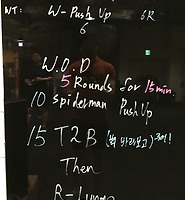 WT: W-Push Up 6R
6
W.O.D
5 Rounds for 15min
10 spiderman Push Up
15 T2B
Then
R-Lunge